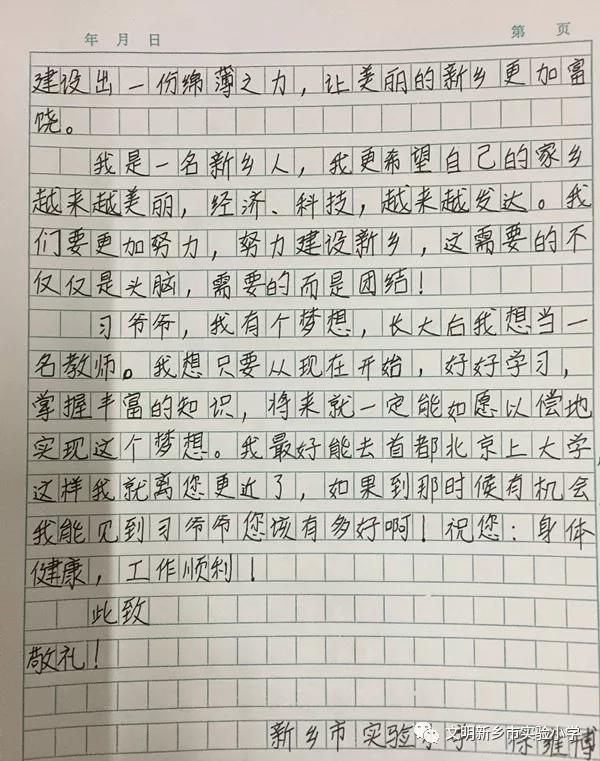 年 月 日 第 页
建设出一份绵薄之力，让美丽的新乡更加富
饶。
我是一名新乡人，我更希望自己的家乡
越来越美丽，经济、科技，越来越发达。我
们要更加努力，努力建设新乡，这需要的不
仅仅是头脑，需要的而是团结！
习爷爷，我有个梦想，长大后我想当一
名教师。我想只要从现在开始，好好学习，
掌握丰富的知识，将来就一定能如愿以偿地
实现这个梦想。我最好能去首都北京上大学，
这样我就离您更近了，如果到那时候有机会
我能见到习爷爷您该有多好啊！祝您：身体
健康，工作顺利！
此致
敬礼！
新乡市实验
文明新乡市实验小学